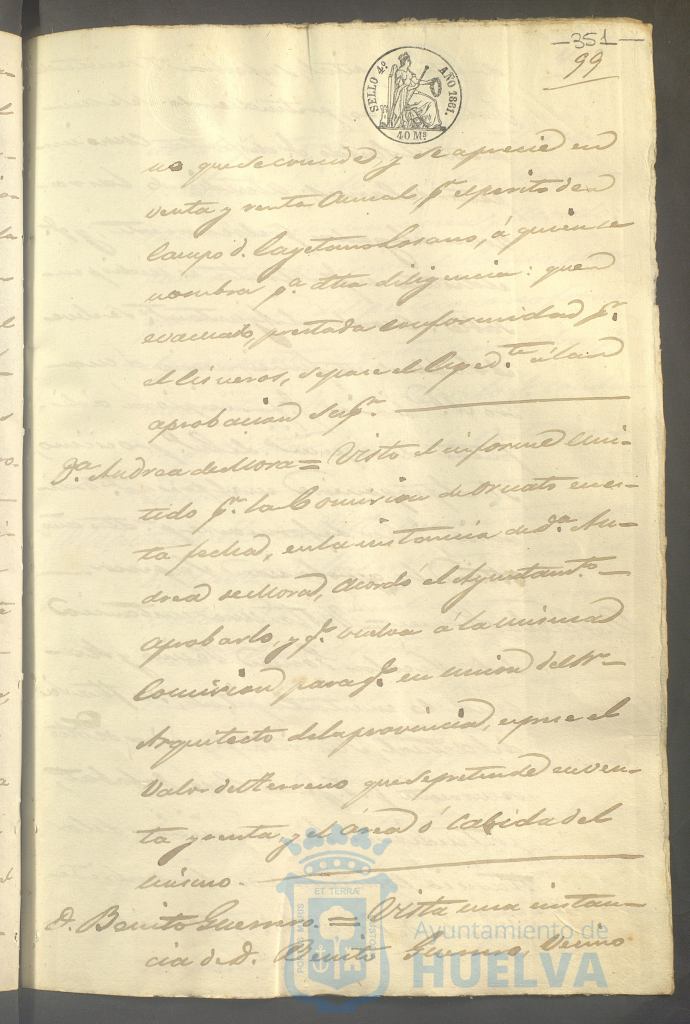 —351—
99
SELLO 4º AÑO 1861.
40 Mˢ
no que se concede, y se aprecie en
venta y renta anual pr. el perito de
Campo d. Cayetano Losano, á quien se
nombra pª. dha diligencia: que
evacuado, prestada conformidad pr.
el Cisneros, se pase el Expedte. á la
aprobacion
Dª. Andrea de Mora = Visto el informe emi-
tido pr. la Comision de Ornato en es-
ta fecha, en la instancia de dª. An-
drea de Mora, acordó el Ayuntamto.
aprobarlo, y qe. vuelva á la misma
Comision, para qe. en union del Sr.
Arquitecto de la provincia, exprese el
valor del terreno que se pretende en ven-
ta y renta, y el área ó cabida del
mismo.
D. Benito Guerrero. = Vista una instan-
cia de D. Benito Guerrero, vecino
ET TERRÆ
PORTUS MARIS
CUSTODIA
Ayuntamiento de
HUELVA